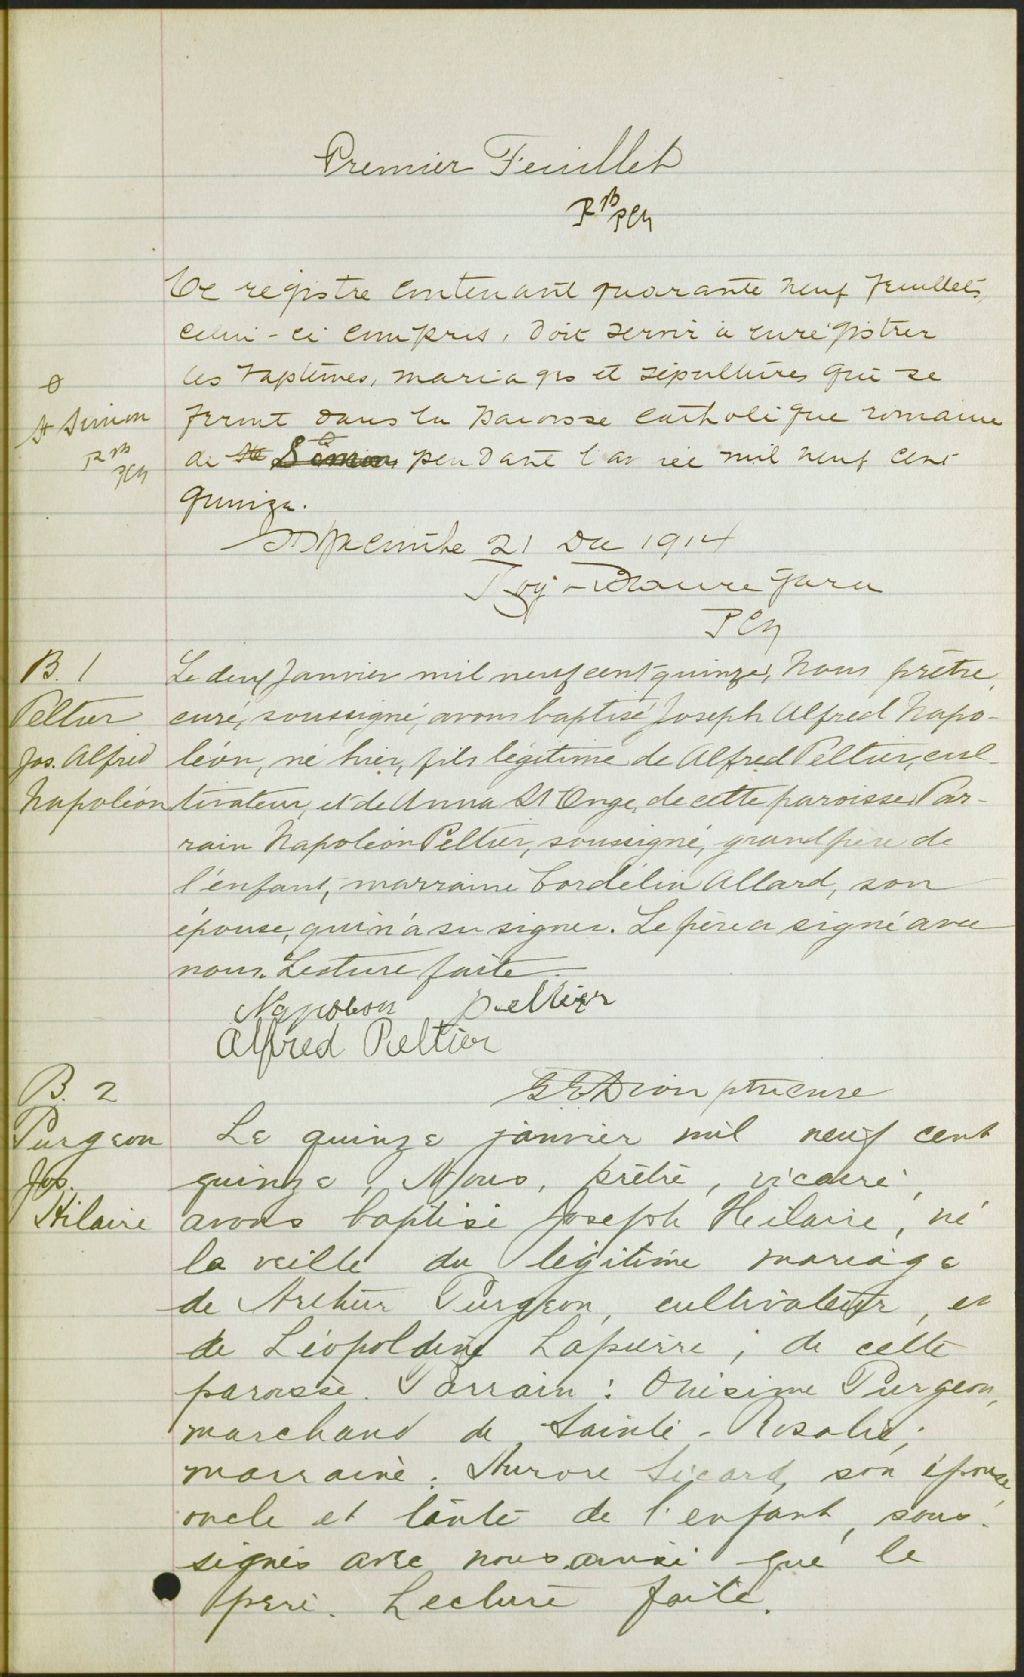 Premier Feuillet
RB
PCS
Ce registre contenant quarante neuf feuillets,
celui-ci compris, doit servir à enrégistrer
les baptêmes, mariages et sépultures qui se
feront dans la paroisse catholique romaine
St Simon
RB
PCS
de Ste Simon pendant l'année mil neuf cent
quinze.
St Hyacinthe 21 Dec 1914
PCS
B. 1
Peltier
Jos. Alfred
Napoléon
Le deux Janvier mil neuf cent quinze, Nous prêtre,
curé, soussigné, avons baptisé Joseph Alfred Napo-
léon, né hier, fils légitime de Alfred Peltier, cul-
tivateur, et de Anna St Onge, de cette paroisse. Par-
rain Napoléon Peltier, soussigné, grand père de
l'enfant, marraine Cordélin Allard, son
épouse, qui n'a su signer. Le père a signé avec
nous. Lecture faite.
Napoleon Peltier
Alfred Peltier
Dion ptre cure
B. 2
Purgeon
Jos.
Hilaire
Le quinze janvier mil neuf cent
quinze, Nous, prêtre, vicaire,
avons baptisé Joseph Hilaire, né
la veille du légitime mariage
de Arthur Purgeon, cultivateur, et
de Léopoldine Lapierre, de cette
paroisse. Parrain : Onésime Purgeon,
marchand de Sainte-Rosalie;
marraine. Aurore Sicard, son épouse,
oncle et tante de l'enfant, sous-
signés avec nous ainsi que le
père. Lecture faite.